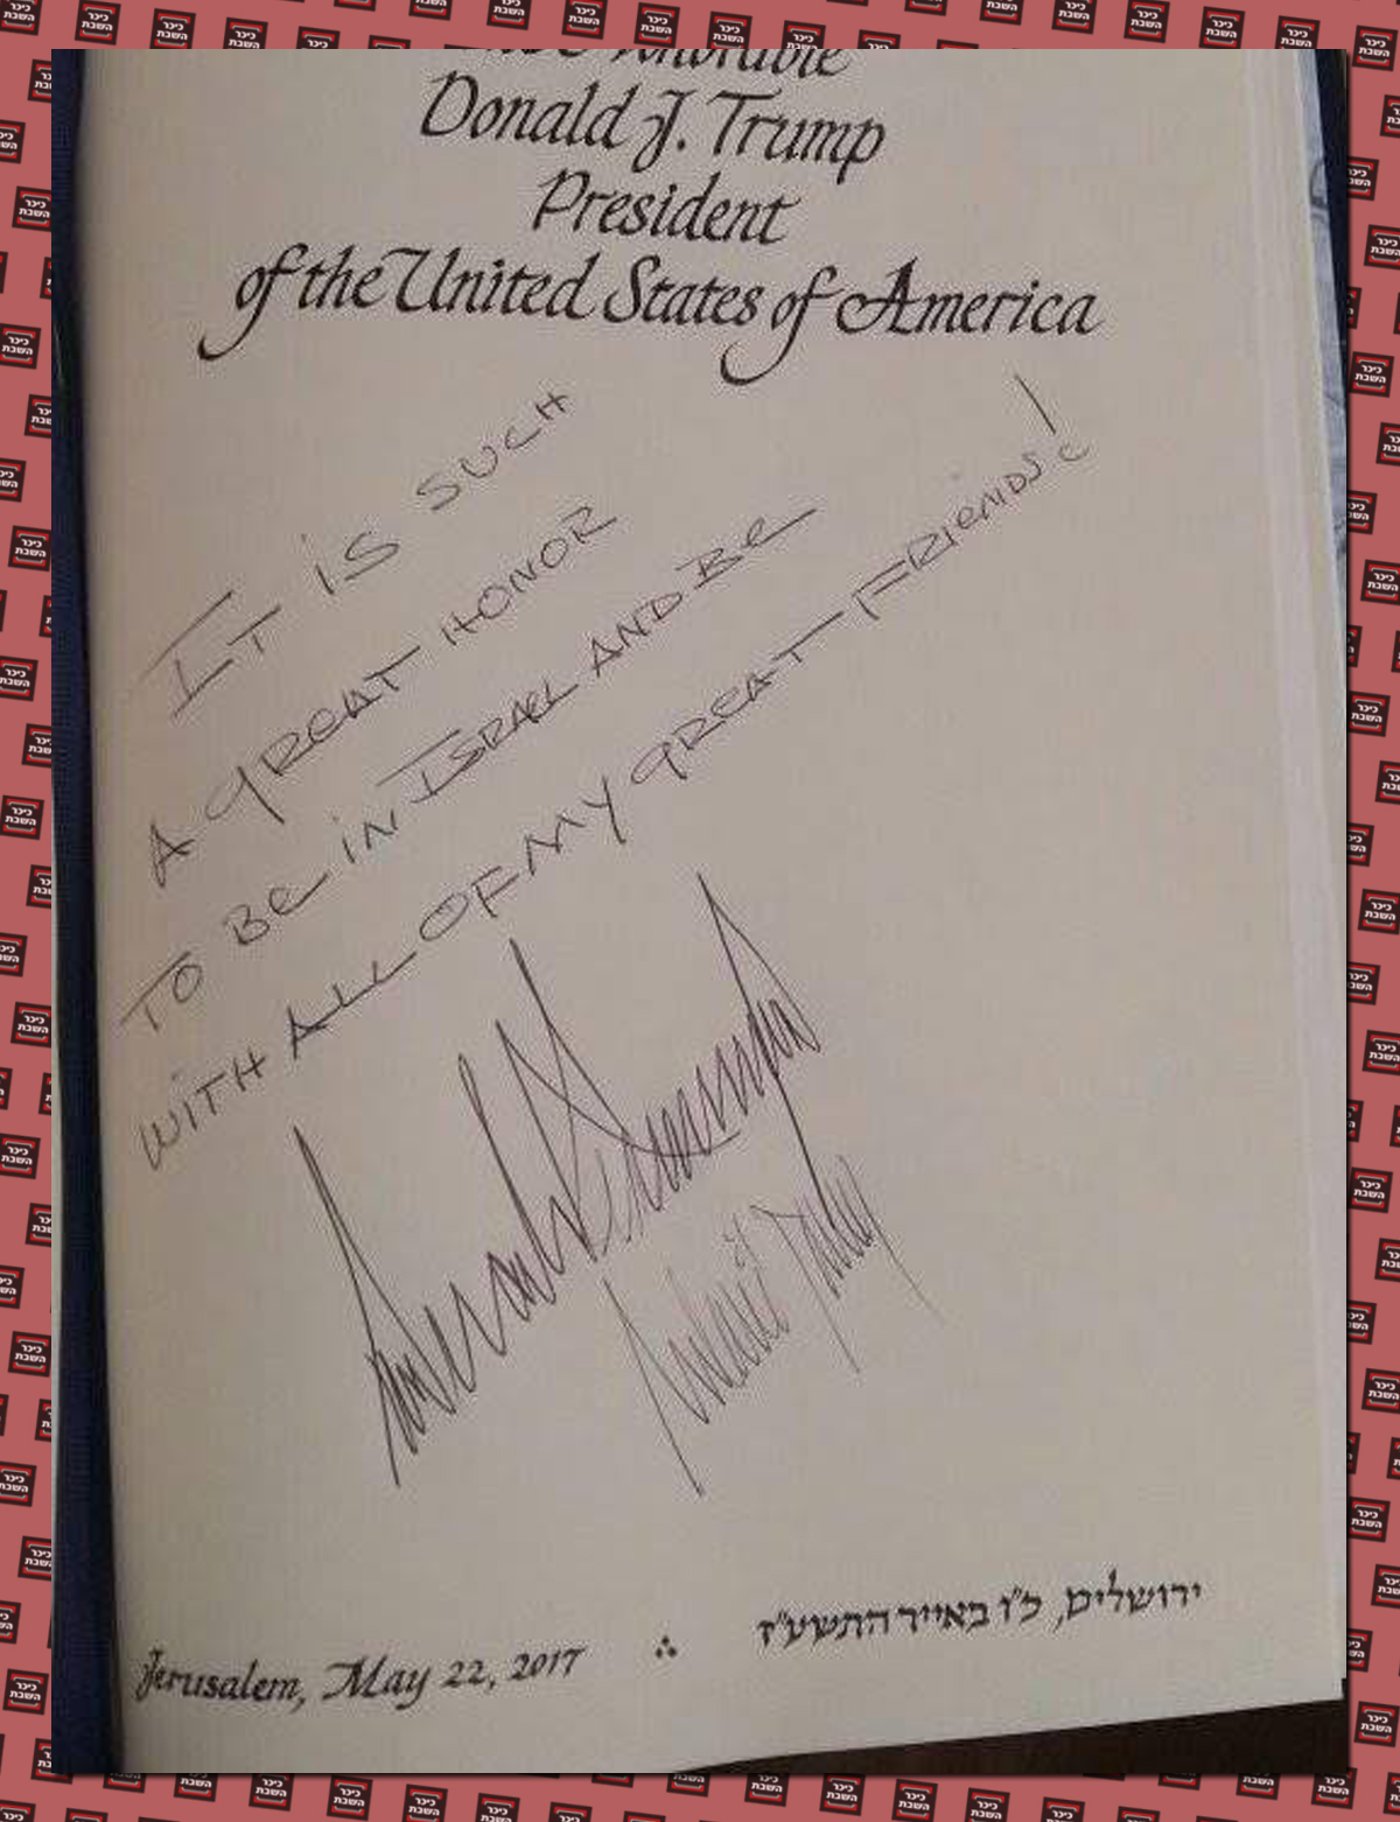 Honorable
Donald J. Trump
President
of the United States of America
IT IS SUCH
A GREAT HONOR
TO BE IN ISRAEL AND BE
WITH ALL OF MY GREAT FRIENDS!
Jerusalem, May 22, 2017
ירושלים, כ"ו באייר התשע"ז
כיכר
השבת